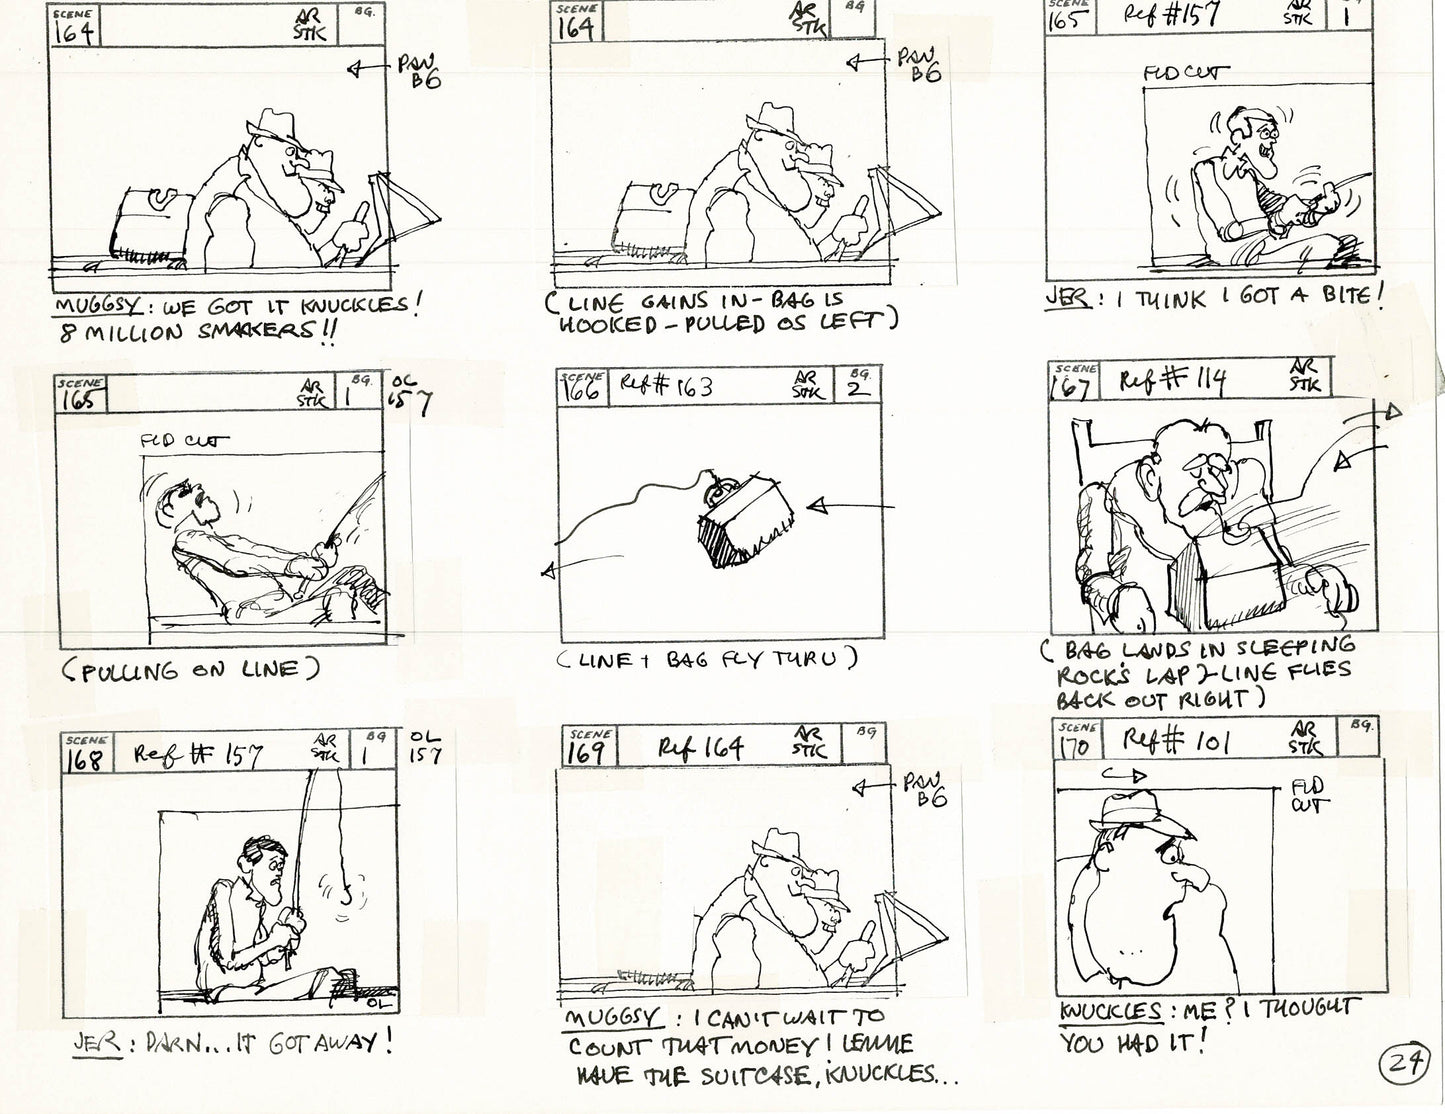 SCENE 164 AR STK BG.
PAN BG
MUGGSY: WE GOT IT KNUCKLES!
8 MILLION SMAKERS!!
SCENE 164 AR STK BG
PAN BG
(LINE GAINS IN - BAG IS
HOOKED - PULLED OS LEFT)
SCENE 165 Ref #157 AR STK BG 1
FLD CUT
JER: I THINK I GOT A BITE!
SCENE 165 AR STK BG. 1 OL 157
FLD CUT
(PULLING ON LINE)
SCENE 166 Ref # 163 AR STK BG. 2
(LINE + BAG FLY THRU)
SCENE 167 Ref # 114 AR STK
(BAG LANDS IN SLEEPING
ROCK'S LAP - LINE FLIES
BACK OUT RIGHT)
SCENE 168 Ref # 157 AR STK BG 1 OL 157
OL
JER: DARN... IT GOT AWAY!
SCENE 169 Ref 164 AR STK BG
PAN BG
MUGGSY: I CAN'T WAIT TO
COUNT THAT MONEY! LEMME
HAVE THE SUITCASE, KNUCKLES...
SCENE 170 Ref # 101 AR STK BG.
FLD CUT
KNUCKLES: ME? I THOUGHT
YOU HAD IT!
24